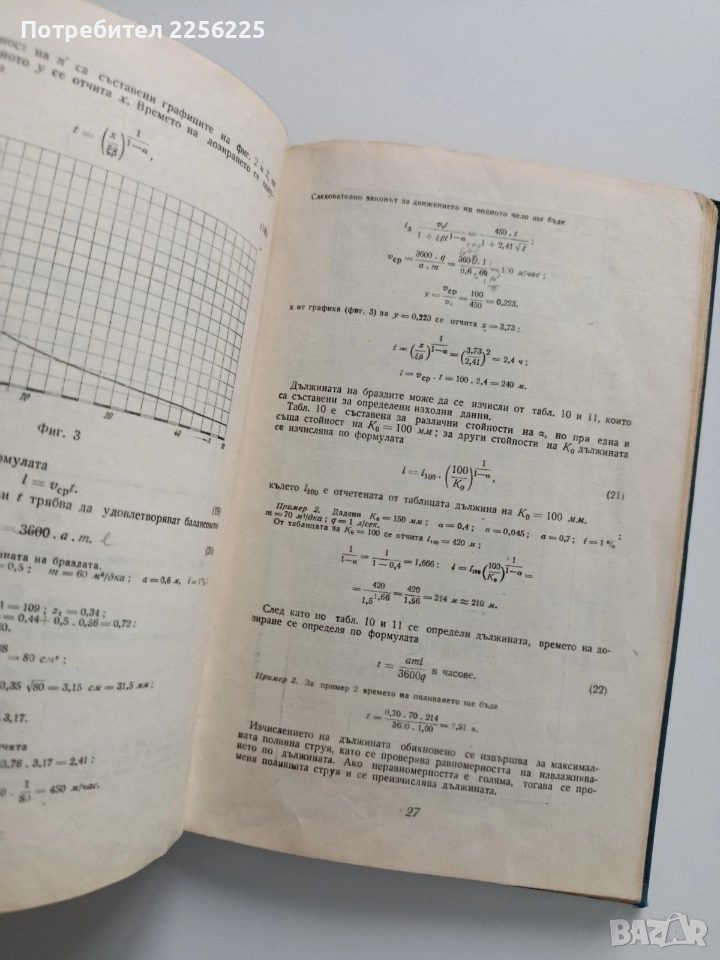 Потребител 2256225
ност на n′ са съставени графиките на фиг. 2 и
ното y се отчита x. Времето на дозирането се
t = (x/ξβ)^(1/(1—α)),
Фиг. 3
формулата
l = v_ср t. (19)
и t трябва да удовлетворяват балансовото
= 3600 . a . m. l (20)
ината на браздата.
= 0,5; m = 60 м³/дка; a = 0,6 м,
1 = 109; z₁ = 0,34;
= 0,44 + 0,5 . 0,56 = 0,72;
= 80 см²;
0,35 √80 = 3,15 см = 31,5 мм;
3,17.
отчита
0,76 . 3,17 = 2,41;
= 450 м/час.
Следователно законът за движението на водното чело ще бъде
l_д = v₁t/(1 + ξβt^(1—α)) = 450 . t/(1 + 2,41 √t);
v_ср = 3600 . q/(a . m) = 3600 . 1/(0,6 . 60) = 100 м/час;
y = v_ср/v₁ = 100/450 = 0,223.
а от графика (фиг. 3) за y = 0,223 се отчита x = 3,73;
t = (x/ξβ)^(1/(1—α)) = (3,73/2,41)² = 2,4 ч;
l = v_ср . t = 100 . 2,4 = 240 м.
Дължината на браздите може да се изчисли от табл. 10 и 11, които
са съставени за определени изходни данни.
Табл. 10 е съставена за различни стойности на α, но при една и
съща стойност на K₀ = 100 мм; за други стойности на K₀ дължината
се изчислява по формулата
l = l₁₀₀ . (100/K₀)^(1/(1—α)), (21)
където l₁₀₀ е отчетената от таблицата дължина на K₀ = 100 мм.
Пример 2. Дадени K₀ = 150 мм; α = 0,4; n = 0,045; a = 0,7; i = 1 %
m = 70 м³/дка; q = 1 л/сек.
От таблицата за K₀ = 100 се отчита l₁₀₀ = 420 м;
1/(1—α) = 1/(1 — 0,4) = 1,666; l = l₁₀₀ (100/K₀)^(1/(1—α)) =
= 420/1,5^1,66 = 420/1,96 = 214 м ≈ 210 м.
След като по табл. 10 и 11 се определи дължината, времето на до-
зиране се определя по формулата
t = aml/3600q в часове. (22)
Пример 3. За пример 2 времето на поливането ще бъде
t = 0,70 . 70 . 214/3600 . 1,00 = 2,91 ч.
Изчислението на дължината обикновено се извършва за максимал-
ната поливна струя, като се проверява равномерността на навлажнява-
нето по дължината. Ако неравномерността е голяма, тогава се про-
меня поливната струя и се преизчислява дължината.
27
BAZAR